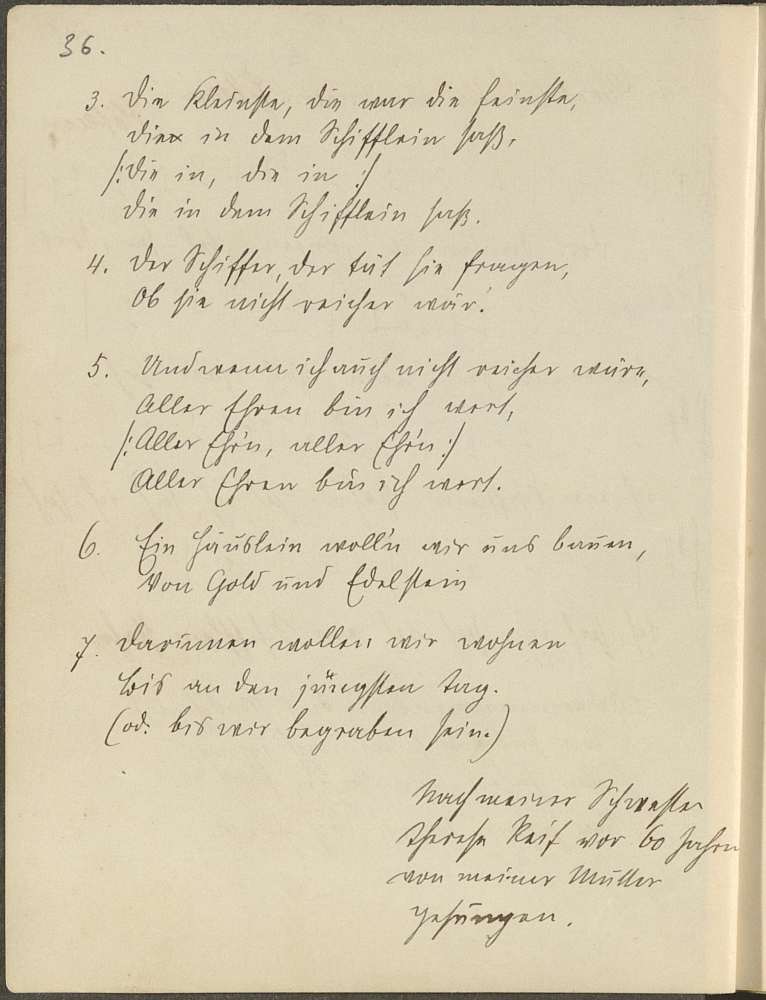 36.
3. Die Kleinste, die war die feinste,
die in dem Schifflein saß,
/: Die in, die in :/
die in dem Schifflein saß.
4. Der Schiffer, der tät sie fragen,
Ob sie nicht reicher wär.
5. Und wenn ich auch nicht reicher wäre,
Aller Ehren bin ich wert,
/: Aller Ehr'n, aller Ehr'n :/
Aller Ehren bin ich wert.
6. Ein Häuslein woll'n wir uns bauen,
Von Gold und Edelstein
7. Darinnen wollen wir wohnen
bis an den jüngsten Tag.
(od: bis wir begraben sein.)
Nach meiner Schwester
Therese Reif vor 60 Jahren
von meiner Mutter
gesungen.